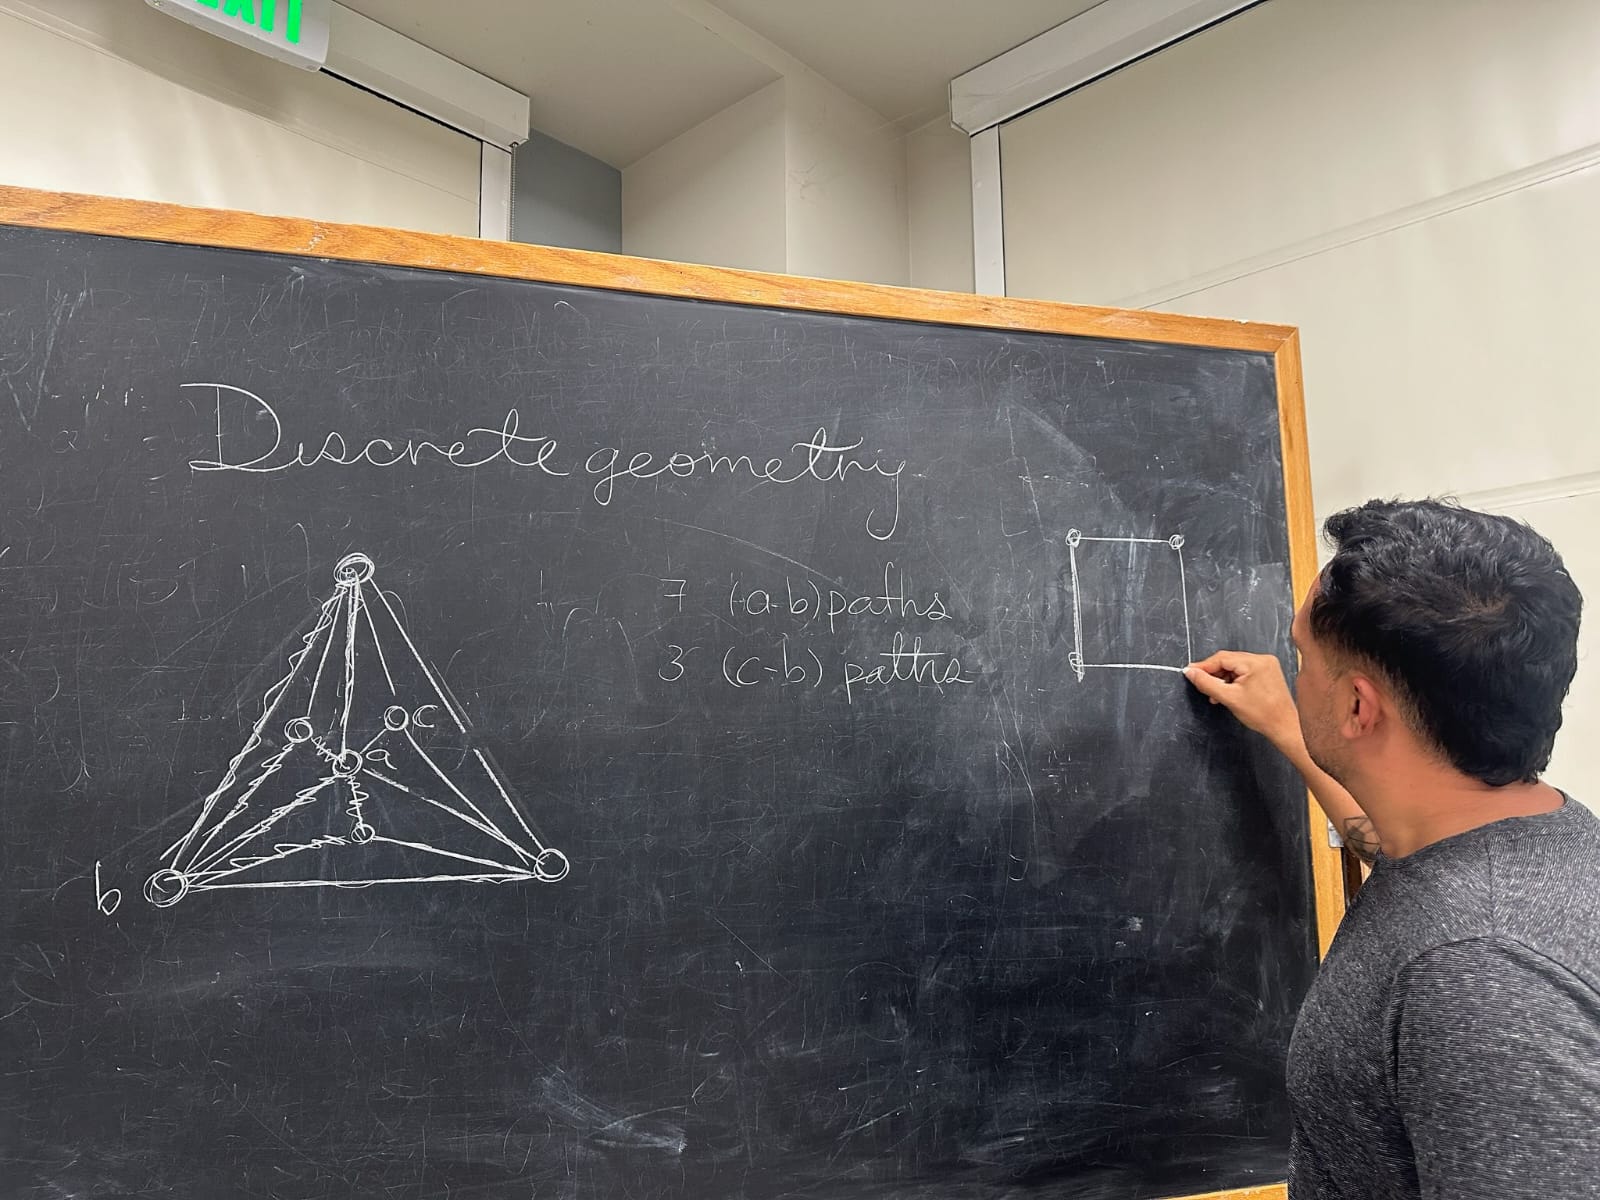 EXIT
Discrete geometry
7 (a-b) paths
3 (c-b) paths
c
a
b